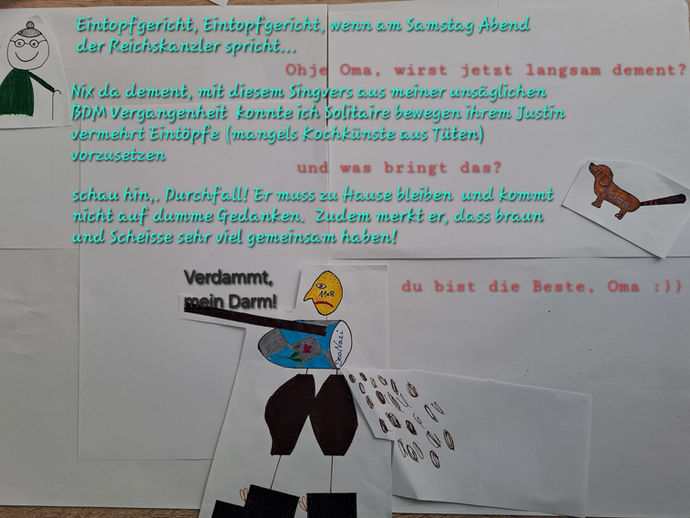 Eintopfgericht, Eintopfgericht, wenn am Samstag Abend
der Reichskanzler spricht...
Ohje Oma, wirst jetzt langsam dement?
Nix da dement, mit diesem Singvers aus meiner unsäglichen
BDM Vergangenheit konnte ich Solitaire bewegen ihrem Justin
vermehrt Eintöpfe (mangels Kochkünste aus Tüten)
vorzusetzen
und was bringt das?
schau hin,. Durchfall! Er muss zu Hause bleiben und kommt
nicht auf dumme Gedanken. Zudem merkt er, dass braun
und Scheisse sehr viel gemeinsam haben!
Verdammt,
mein Darm!
du bist die Beste, Oma :))